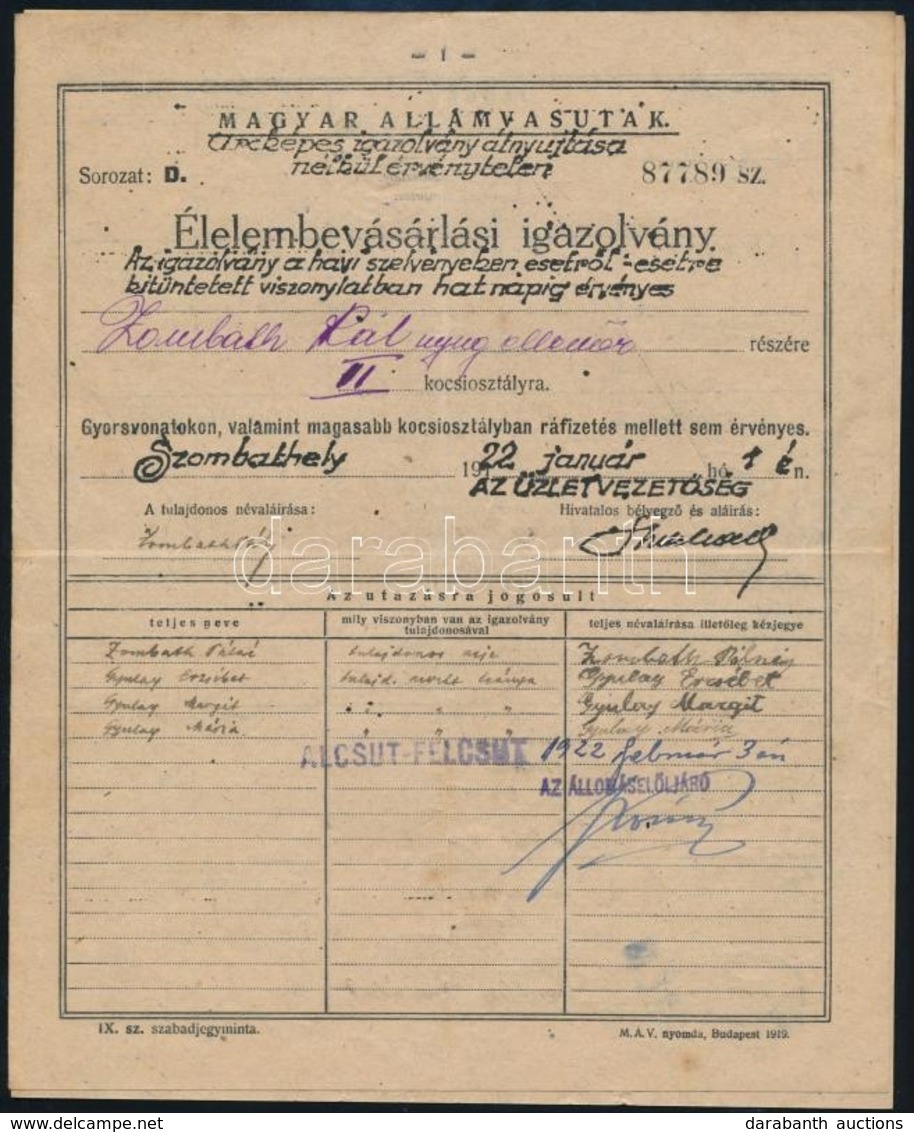 - 1 -
MAGYAR ÁLLAMVASUTAK.
Arcképes igazolvány átnyujtása
nélkül érvénytelen
Sorozat: D.
87789 sz.
Élelembevásárlási igazolvány
Az igazolvány a havi szelvényeken esetről-esetre
kitüntetett viszonylatban hat napig érvényes
Zombath Pál nyug. részére
II kocsiosztályra.
Gyorsvonatokon, valamint magasabb kocsiosztályban ráfizetés mellett sem érvényes.
Szombathely 1922 január hó 1 én.
AZ ÜZLETVEZETŐSÉG
A tulajdonos névaláírása:
Hivatalos bélyegző és aláírás:
Zombath Pál
darabanth
Az utazásra jogosult
teljes neve
mily viszonyban van az igazolvány tulajdonosával
teljes névaláírása illetőleg kézjegye
Zombath Pálné tulajdonos neje Zombath Pálné
Gyulay Erzsébet tulajd. nevelt leánya Gyulay Erzsébet
Gyulay Margit " " " Gyulay Margit
Gyulay Mária " " Gyulay Mária
ALCSUT-FELCSUT 1922 február 3 án
AZ ÁLLOMÁSELŐLJÁRÓ
IX. sz. szabadjegyminta.
M.Á.V. nyomda, Budapest 1919.
delcampe.net
darabanth auctions